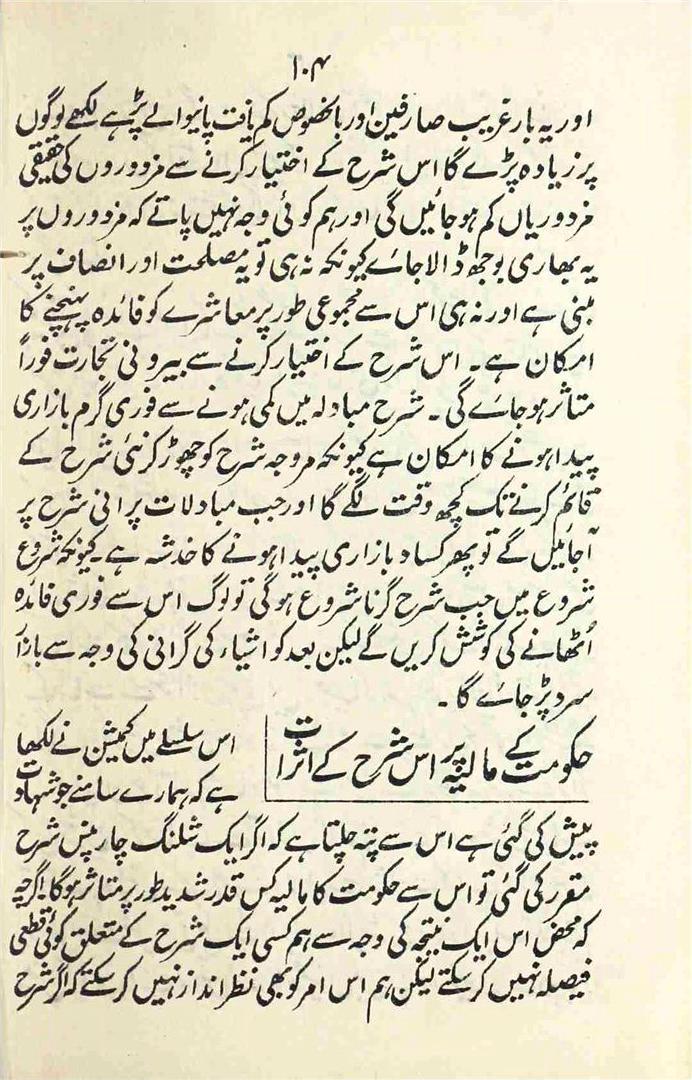 ۱۰۴
اور یہ بار غریب صارفین اور بالخصوص کم یافت پانیوالے پڑھے لکھے لوگوں
پر زیادہ پڑے گا اس شرح کے اختیار کرنے سے مزدوروں کی حقیقی
مزدوریاں کم ہوجائیں گی اور ہم کوئی وجہ نہیں پاتے کہ مزدوروں پر
یہ بھاری بوجھ ڈالا جائے کیونکہ نہ ہی تو یہ مصلحت اور انصاف پر
مبنی ہے اور نہ ہی اس سے مجموعی طور پر معاشرے کو فائدہ پہنچنے کا
امکان ہے۔ اس شرح کے اختیار کرنے سے بیرونی تجارت فوراً
متاثر ہوجائے گی۔ شرح مبادلہ میں کمی ہونے سے فوری گرم بازاری
پیدا ہونے کا امکان ہے کیونکہ مروجہ شرح کو چھوڑ کر نئی شرح کے
قائم کرنے تک کچھ وقت لگے گا اور جب مبادلات پرانی شرح پر
آجائیں گے تو پھر کساد بازاری پیدا ہونے کا خدشہ ہے۔ کیونکہ شروع
شروع میں جب شرح گرنا شروع ہوگی تو لوگ اس سے فوری فائدہ
اُٹھانے کی کوشش کریں گے لیکن بعد کو اشیاء کی گرانی کی وجہ سے بازار
سرد پڑ جائے گا۔
حکومت کے مالیہ پر اس شرح کے اثرات
اس سلسلے میں کمیشن نے لکھا
ہے کہ ہمارے سامنے جو شہادت
پیش کی گئی ہے اس سے پتہ چلتا ہے کہ اگر ایک شلنگ چار پنس شرح
مقرر کی گئی تو اس سے حکومت کا مالیہ کس قدر شدید طور پر متاثر ہوگا۔ اگرچہ
کہ محض اس ایک نتیجہ کی وجہ سے ہم کسی ایک شرح کے متعلق کوئی قطعی
فیصلہ نہیں کرسکتے لیکن ہم اس امر کو بھی نظر انداز نہیں کرسکتے کہ اگر شرح